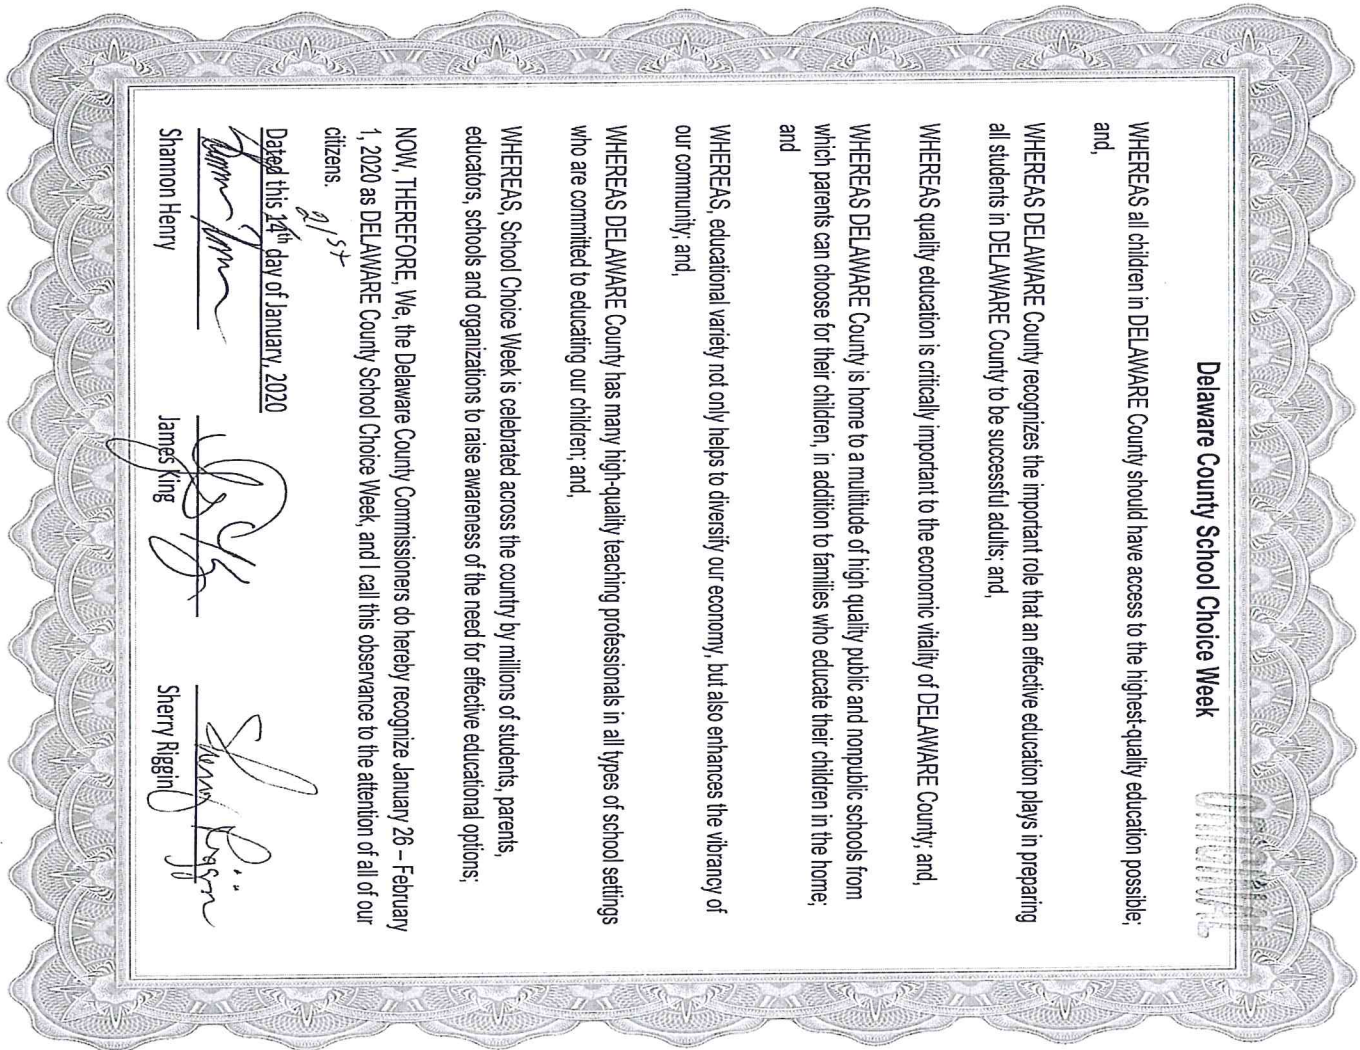 Delaware County School Choice Week
ORIGINAL
WHEREAS all children in DELAWARE County should have access to the highest-quality education possible;
and,
WHEREAS DELAWARE County recognizes the important role that an effective education plays in preparing
all students in DELAWARE County to be successful adults; and,
WHEREAS quality education is critically important to the economic vitality of DELAWARE County; and,
WHEREAS DELAWARE County is home to a multitude of high quality public and nonpublic schools from
which parents can choose for their children, in addition to families who educate their children in the home;
and
WHEREAS, educational variety not only helps to diversify our economy, but also enhances the vibrancy of
our community; and,
WHEREAS DELAWARE County has many high-quality teaching professionals in all types of school settings
who are committed to educating our children; and,
WHEREAS, School Choice Week is celebrated across the country by millions of students, parents,
educators, schools and organizations to raise awareness of the need for effective educational options;
NOW, THEREFORE, We, the Delaware County Commissioners do hereby recognize January 26 – February
1, 2020 as DELAWARE County School Choice Week, and I call this observance to the attention of all of our
citizens.
21st
Dated this 14th day of January, 2020
Sherry Riggin
Shannon Henry James King Sherry Riggin